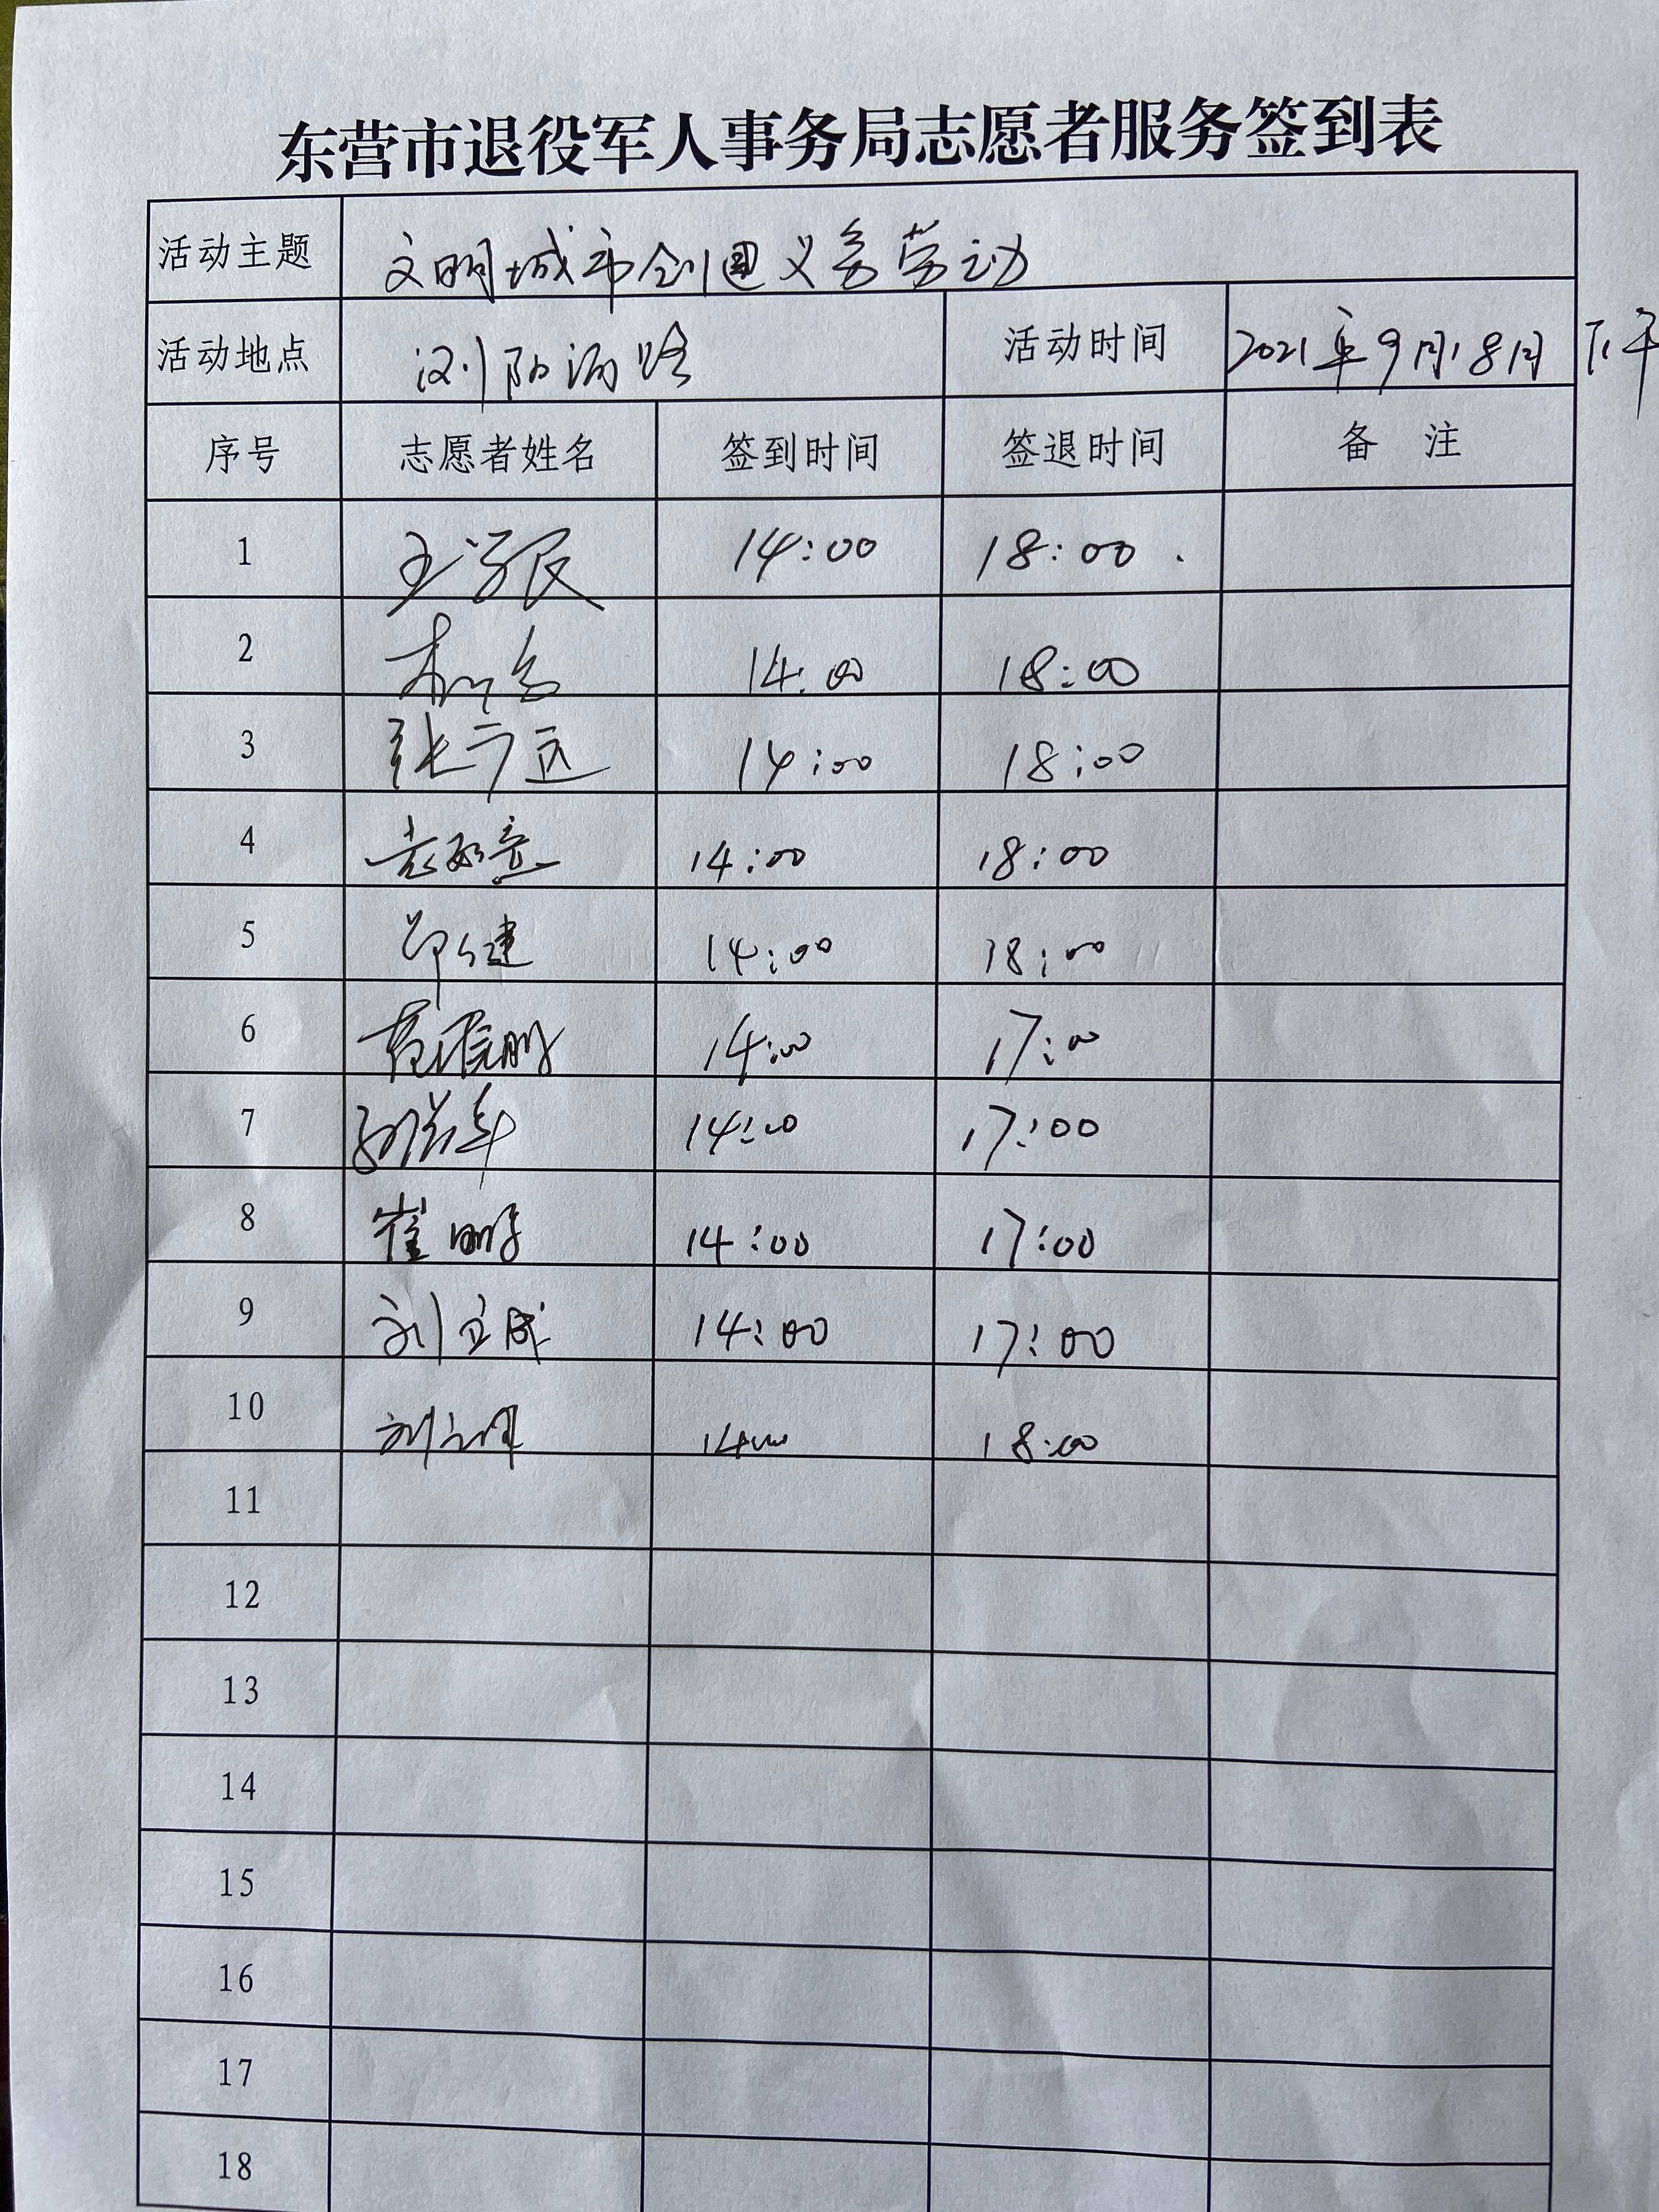 东营市退役军人事务局志愿者服务签到表
活动主题 文明城市创建义务劳动
活动地点 浏阳河路 活动时间 2021年9月18日 下午
序号 志愿者姓名 签到时间 签退时间 备 注
1 14:00 18:00
2 14:00 18:00
3 张广远 14:00 18:00
4 14:00 18:00
5 14:00 18:00
6 14:00 17:00
7 14:00 17:00
8 崔鹏 14:00 17:00
9 刘立成 14:00 17:00
10 14:00 18:00
11
12
13
14
15
16
17
18